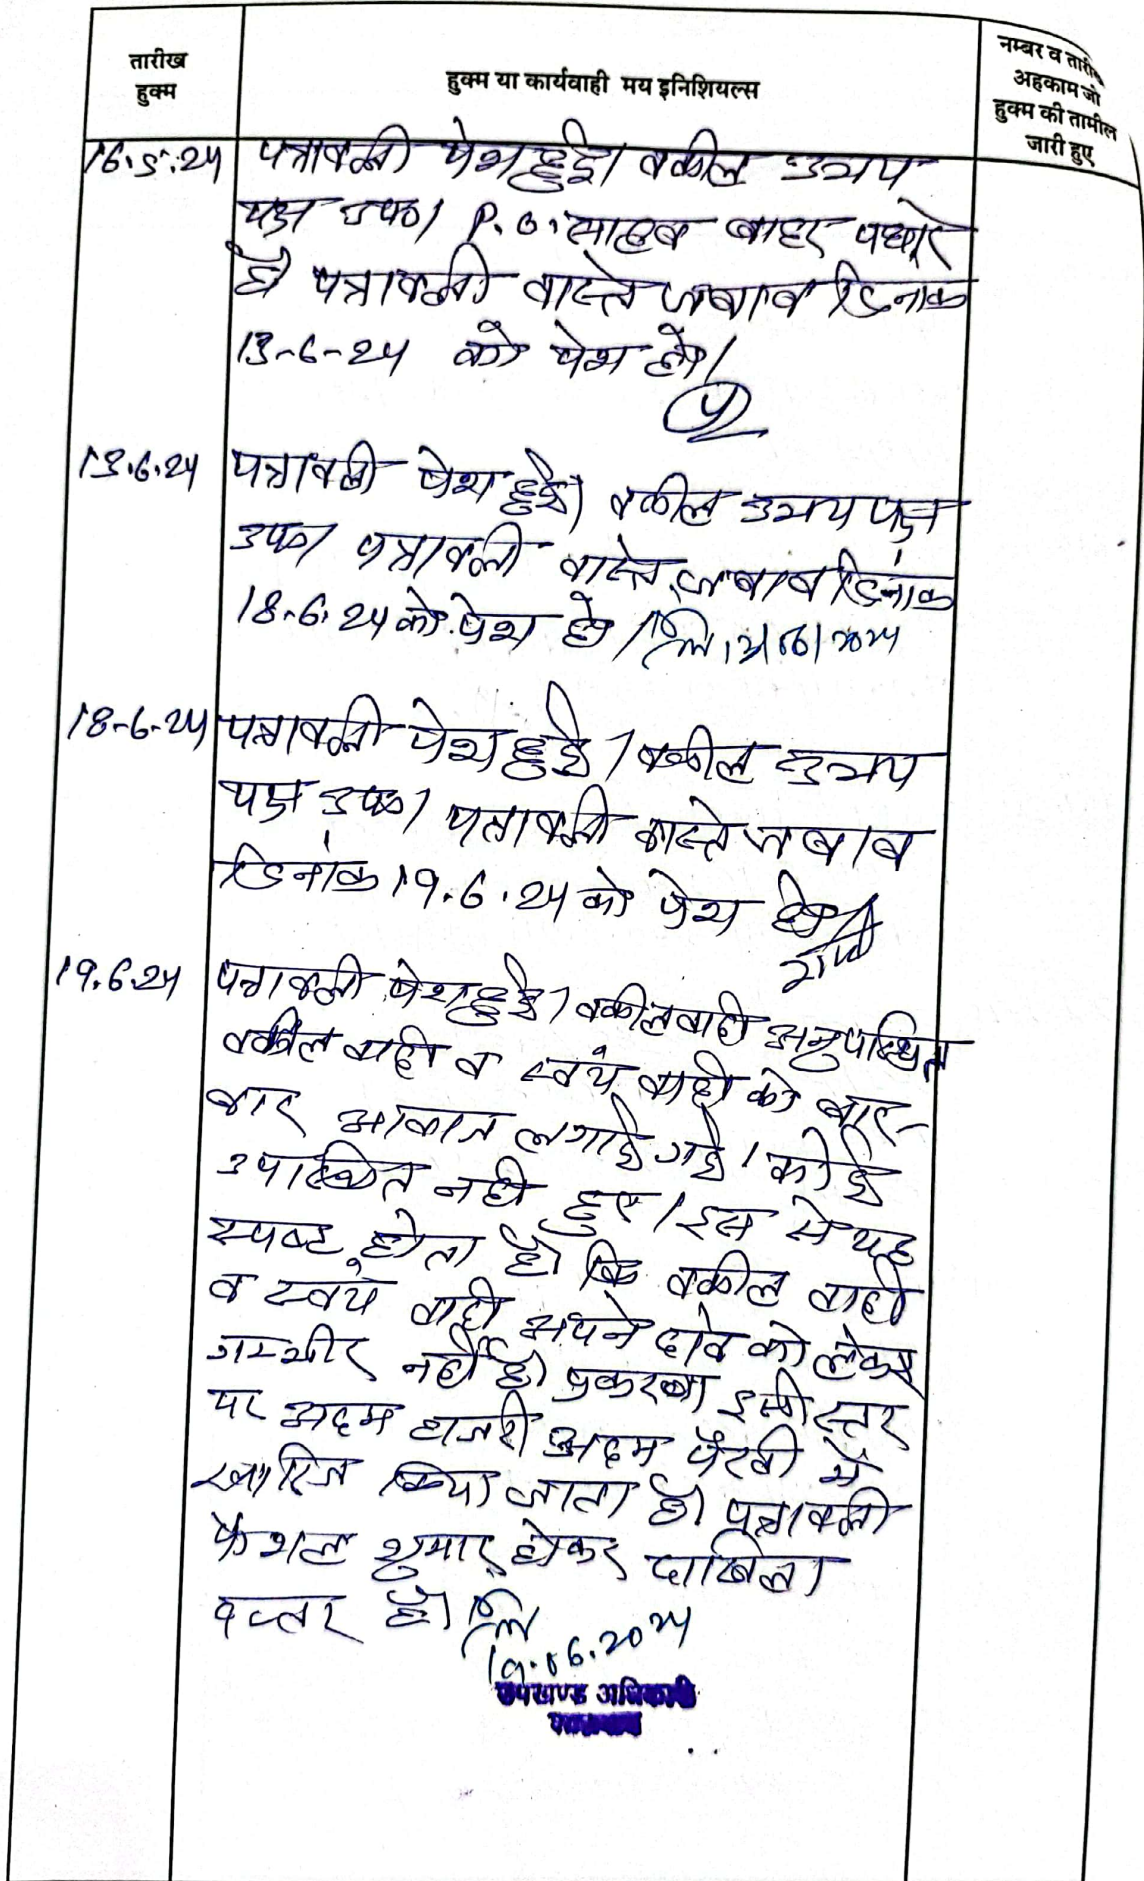 तारीख
हुक्म
हुक्म या कार्यवाही मय इनिशियल्स
नम्बर व तारीख
अहकाम जो
हुक्म की तामील
जारी हुए
16.5.24 पत्रावली पेश हुई। वकील उभय
पक्ष उप०। P.O. साहब बाहर पधारे
है पत्रावली वास्ते जबाब दिनांक
13-6-24 को पेश हो।
13.6.24 पत्रावली पेश हुई। वकील उभय पक्ष
उप०। पत्रावली वास्ते जबाब दिनांक
18.6.24 को पेश हो।
18-6-24 पत्रावली पेश हुई। वकील उभय
पक्ष उप०। पत्रावली वास्ते जबाब
दिनांक 19.6.24 को पेश हो।
19.6.24 पत्रावली पेश हुई। वकील वादी अनुपस्थित
वकील वादी व स्वयं वादी को बार-
बार आवाज लगाई गई। कोई
उपस्थित नही हुए। इस से यह
स्पष्ट होता है कि वकील वादी
व स्वयं वादी अपने दावे को लेकर
गम्भीर नहीं है। प्रकरण इसी स्तर
पर अदम हाजरी अदम पैरवी में
खारिज किया जाता है। पत्रावली
फैशल शुमार होकर दाखिल
दफ्तर हो।
19.06.2024
उपखण्ड अधिकारी